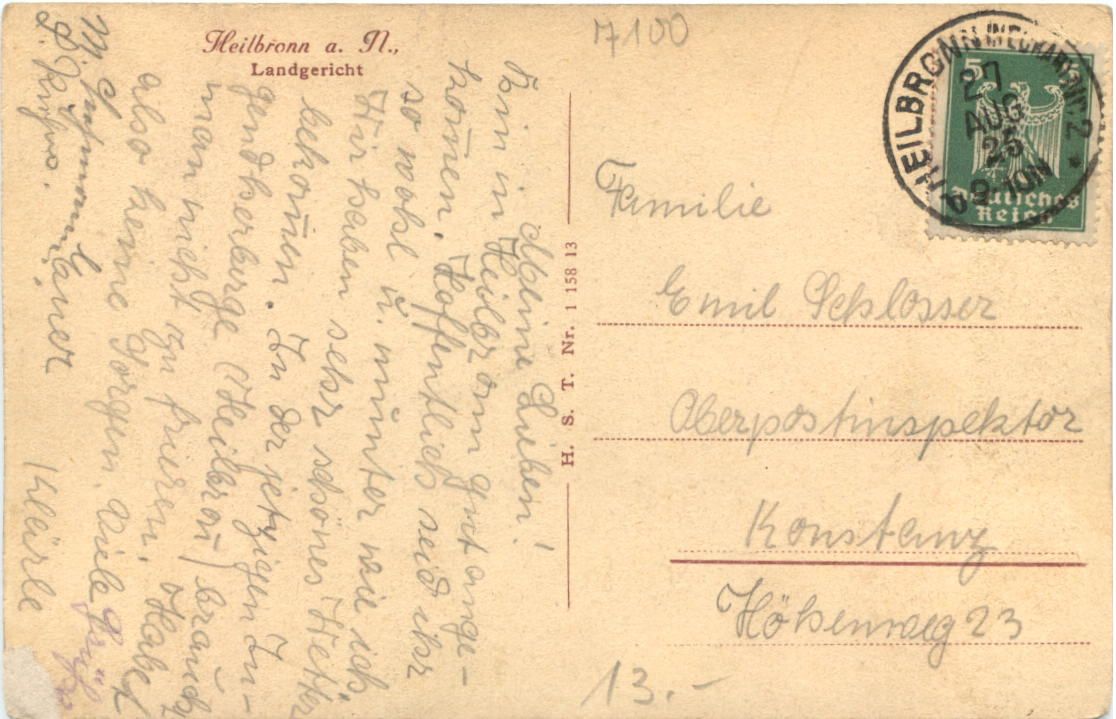 Heilbronn a. N.,
Landgericht
7100
HEILBRONN (NECKAR)
27
AUG
25
9-10 N
5
Deutsches
Reich
Meine Lieben!
Bin in Heilbronn gut ange-
kom̄en. Hoffentlich seid ihr
so wohl u. munter wie ich
Wir haben sehr schönes Wetter
bekom̄en. In der jetzigen Ju-
gendherberge (Heilbron̄) brauch
man nicht zu frieren. Habet
also keine Sorgen. Viele Grüße
Klärle
H. S. T. Nr. 1 158 13
Familie
Emil Schlosser
Oberpostinspektor
Konstanz
Höhenweg 23
13.-